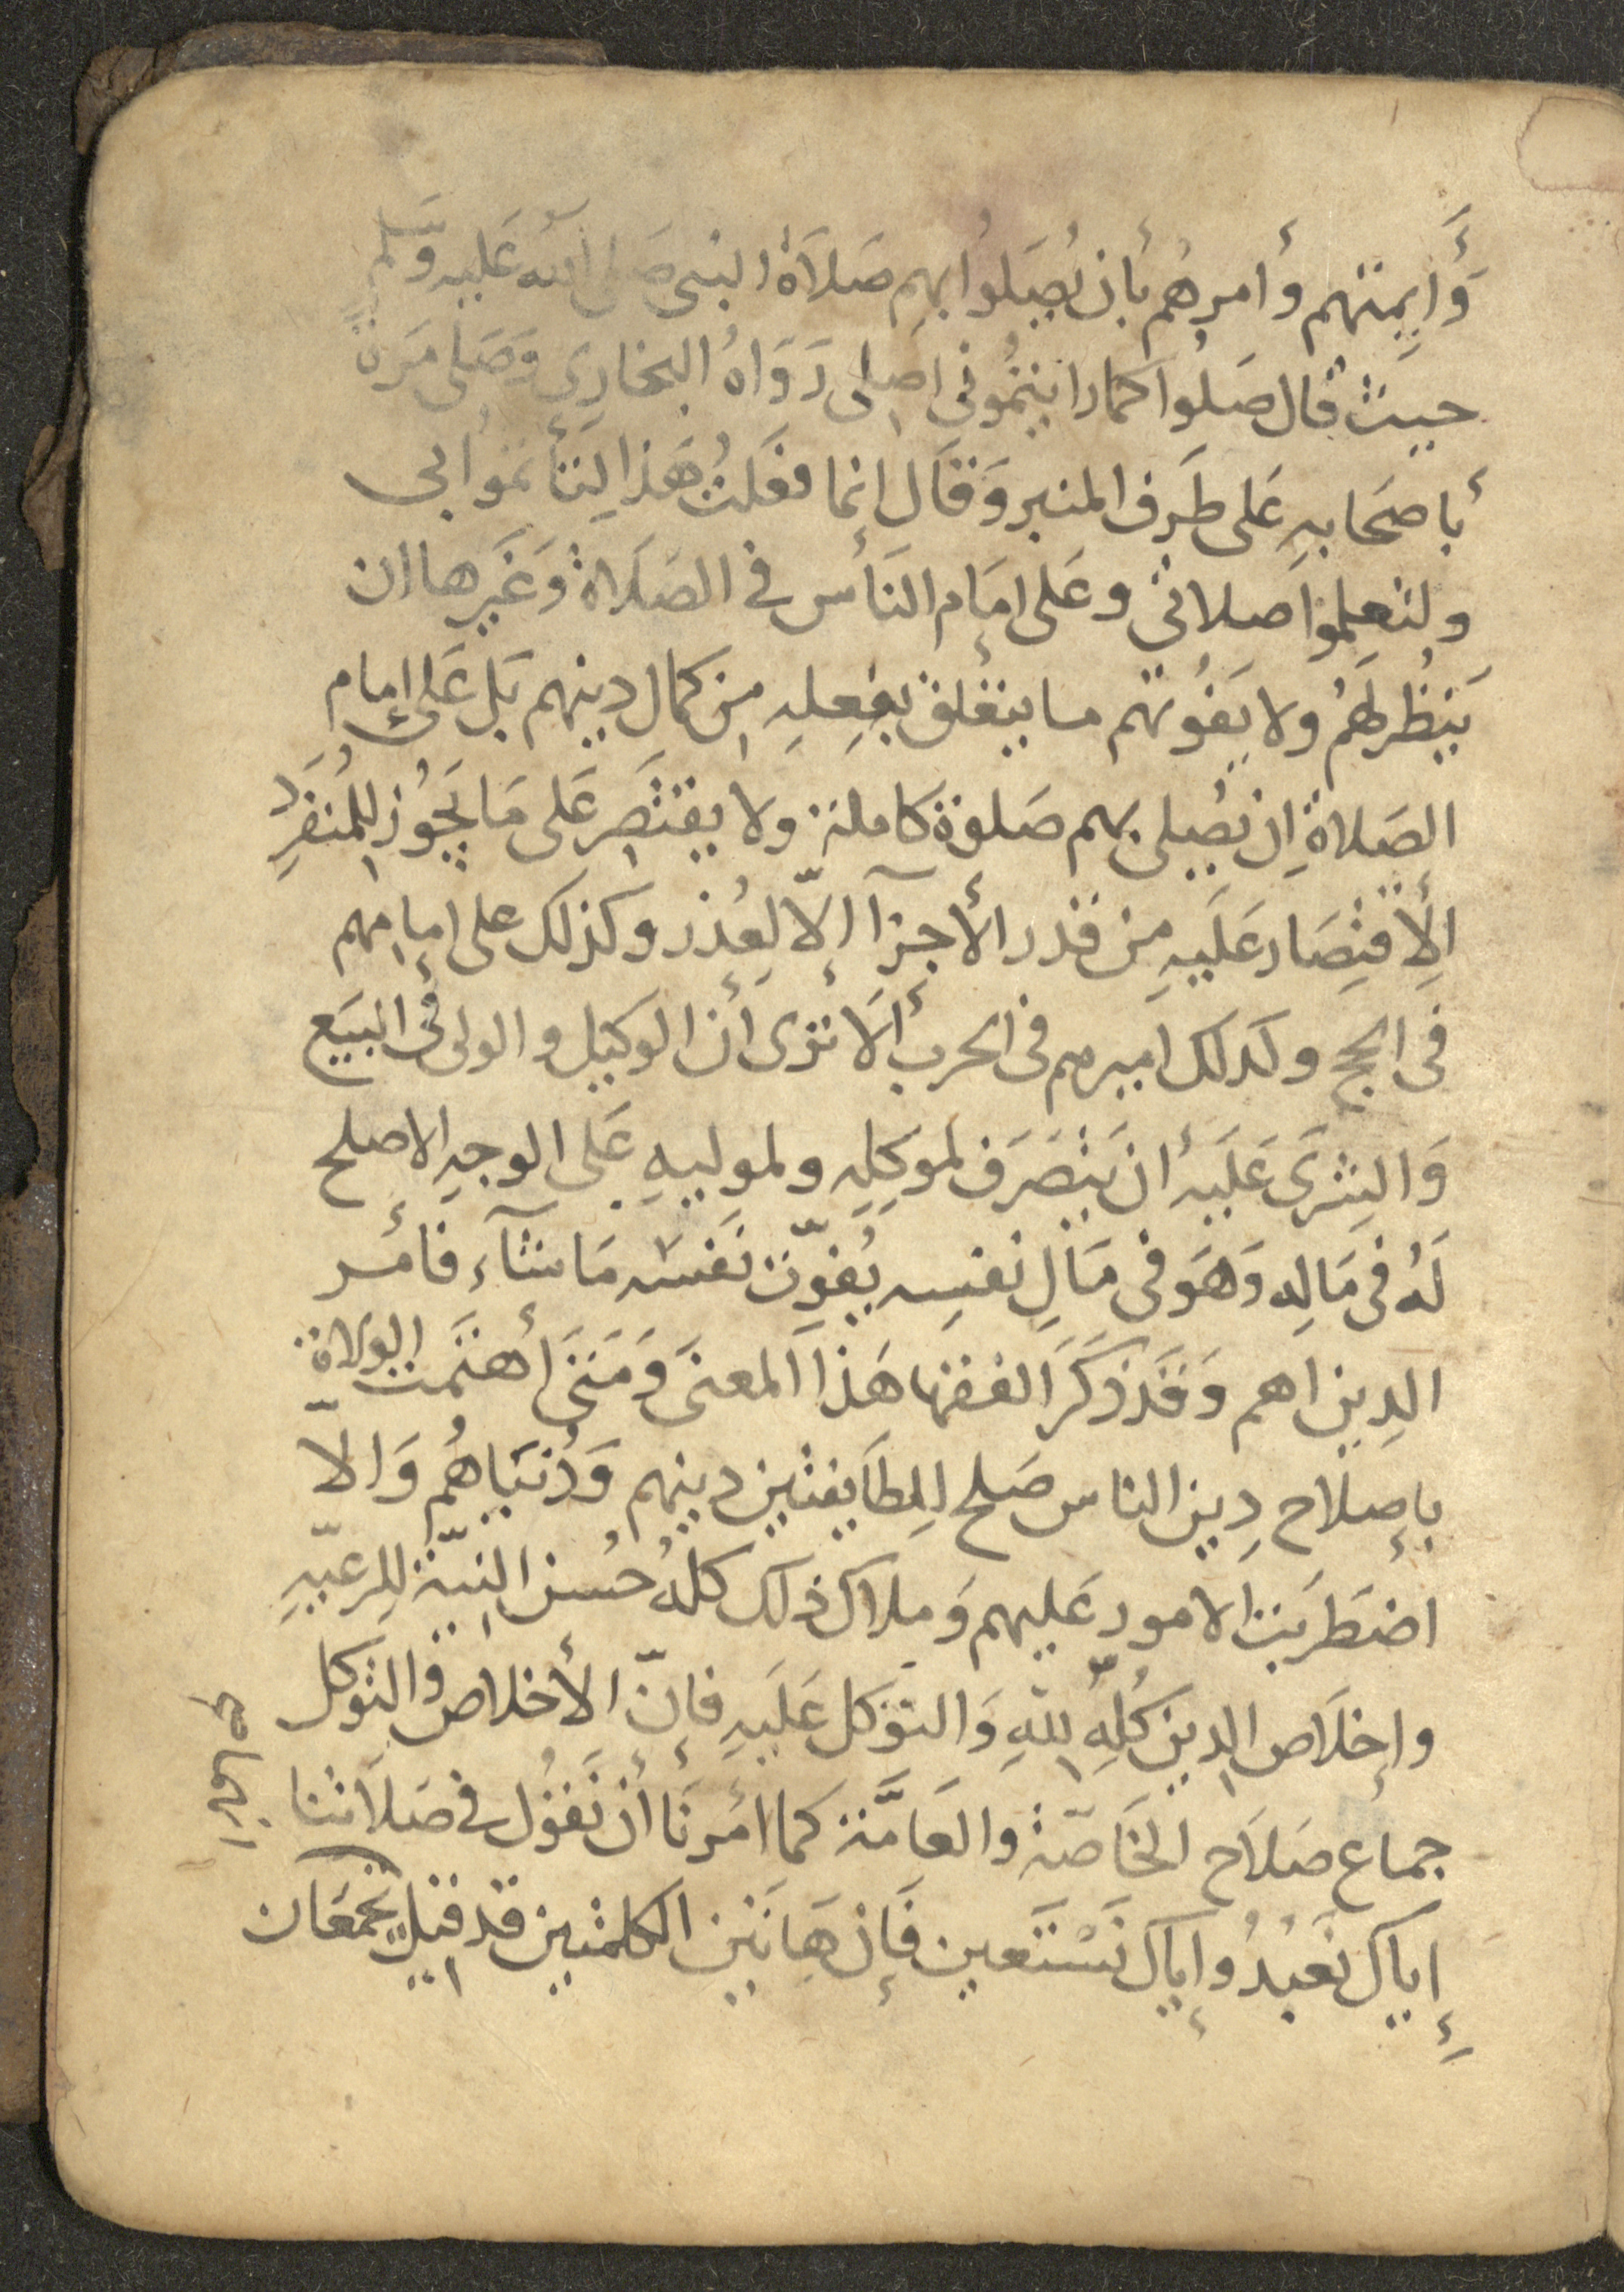 وَأَيِمتهم وأمرهُم بأن يُصَلوا بهم صَلاَة النبى صَلى الله عَليه وَسَلم
حيث قال صَلُوا كما رايتمُونى اصلى رَوَاهُ البخارى وَصَلى مَرةً
بأصحَابهِ عَلى طَرف المنبر وَقَال إنما فعَلتُ هَذا لِتَأتمُوا بى
ولتعلموا صلاتى وعَلى امَام النَاس فى الصَلاة وَغَيرها ان
يَنظُر لهَمُ ولا يَفُوتهم ما يتعلق بفِعلهِ مِن كمال دينهم بَل عَلى إمام
الصَلاةِ ان يُصلى بهم صَلوة كاملة ولا يقتَصِر عَلى مَا يَجُوز لِلمُنفَرِد
الِأقتِصَار عَلَيهِ من قدر الأجزآ إلاّ لِعُذر وكذلك على إمامهم
فى الحج وكدلك اميرهم فى الحرب ألَا ترى أن الوكيل والولى فى البيَع
وَالشِرَى عَلَيه أن يَتصَرَف لموكلِه ولموليهِ عَلى الوجهِ الاصلح
لَهُ فى مَالِه وَهوَ فى مَالِ نفسِه يُفوّت نَفسَه مَا شآء فأمر
الدِين اهم وَقَد ذكَرَ الفقها هَذا المعنَى وَمَتَى أهتَمت الولاة
بإصلاح دِين الناس صَلح لِلطَايفتين دينهم وَدُنيَاهُم وَالاّ
اضطَرَبَت الامور عَليهم وَملاك ذلك كلهُ حُسن النيّة لِلرعيّهِ
وإخلَاص الدِين كُلِهِ لِلهِ وَالتوَكل عَلَيهِ فإنّ الأخلاص والتوكل
جماع صَلاَح الخَاصّه والعَامَّة كما أمرنَا أن نَقوُل فى صَلاَتنا
إياك نَعبُدُ وإياك نَسْتَعين فَإن هَاتَين الكلمتين قد قيل يجمعَان